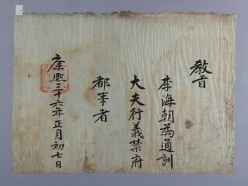 教旨
李海朝為通訓
大夫行義禁府
都事者
康熙三十六年正月初七日